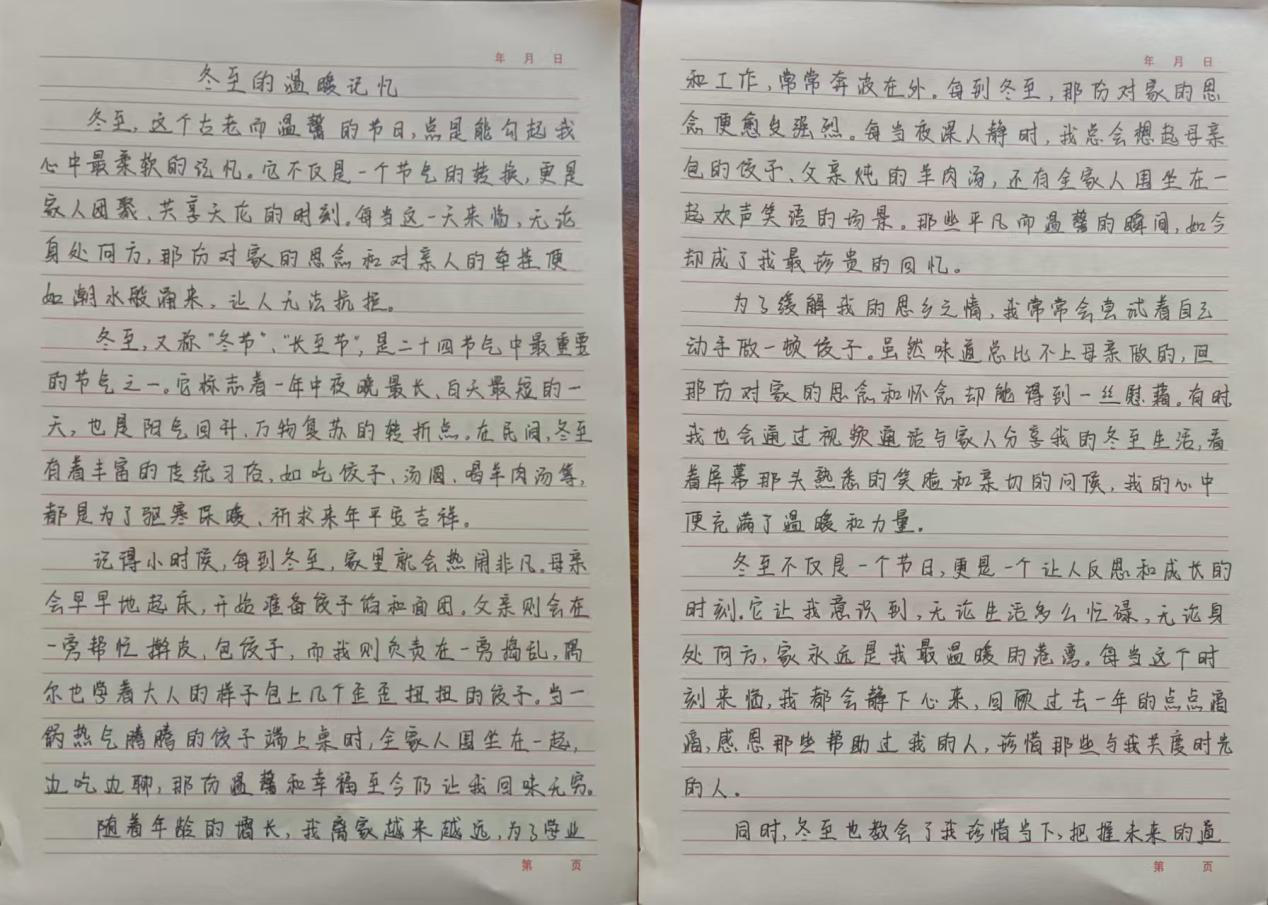 年 月 日
冬至的温暖记忆
冬至,这个古老而温馨的节日,总是能勾起我
心中最柔软的记忆。它不仅是一个节气的转换,更是
家人团聚、共享天伦的时刻。每当这一天来临,无论
身处何方,那份对家的思念和对亲人的牵挂便
如潮水般涌来,让人无法抗拒。
冬至,又称“冬节”、“长至节”,是二十四节气中最重要
的节气之一。它标志着一年中夜晚最长、白天最短的一
天,也是阳气回升、万物复苏的转折点。在民间,冬至
有着丰富的传统习俗,如吃饺子、汤圆、喝羊肉汤等,
都是为了驱寒保暖、祈求来年平安吉祥。
记得小时候,每到冬至,家里就会热闹非凡。母亲
会早早地起床,开始准备饺子馅和面团。父亲则会在
一旁帮忙擀皮、包饺子,而我则负责在一旁捣乱,偶
尔也学着大人的样子包上几个歪歪扭扭的饺子。当一
锅热气腾腾的饺子端上桌时,全家人围坐在一起,
边吃边聊,那份温馨和幸福至今仍让我回味无穷。
随着年龄的增长,我离家越来越远,为了学业
第 页
年 月 日
和工作,常常奔波在外。每到冬至,那份对家的思
念便愈发强烈。每当夜深人静时,我总会想起母亲
包的饺子、父亲炖的羊肉汤,还有全家人围坐在一
起欢声笑语的场景。那些平凡而温馨的瞬间,如今
却成了我最珍贵的回忆。
为了缓解我的思乡之情,我常常会尝试着自己
动手做一顿饺子。虽然味道总比不上母亲做的,但
那份对家的思念和怀念却能得到一丝慰藉。有时
我也会通过视频通话与家人分享我的冬至生活,看
着屏幕那头熟悉的笑脸和亲切的问候,我的心中
便充满了温暖和力量。
冬至不仅是一个节日,更是一个让人反思和成长的
时刻。它让我意识到,无论生活多么忙碌,无论身
处何方,家永远是我最温暖的港湾。每当这个时
刻来临,我都会静下心来,回顾过去一年的点点滴
滴,感恩那些帮助过我的人,珍惜那些与我共度时光
的人。
同时,冬至也教会了我珍惜当下,把握未来的道
第 页